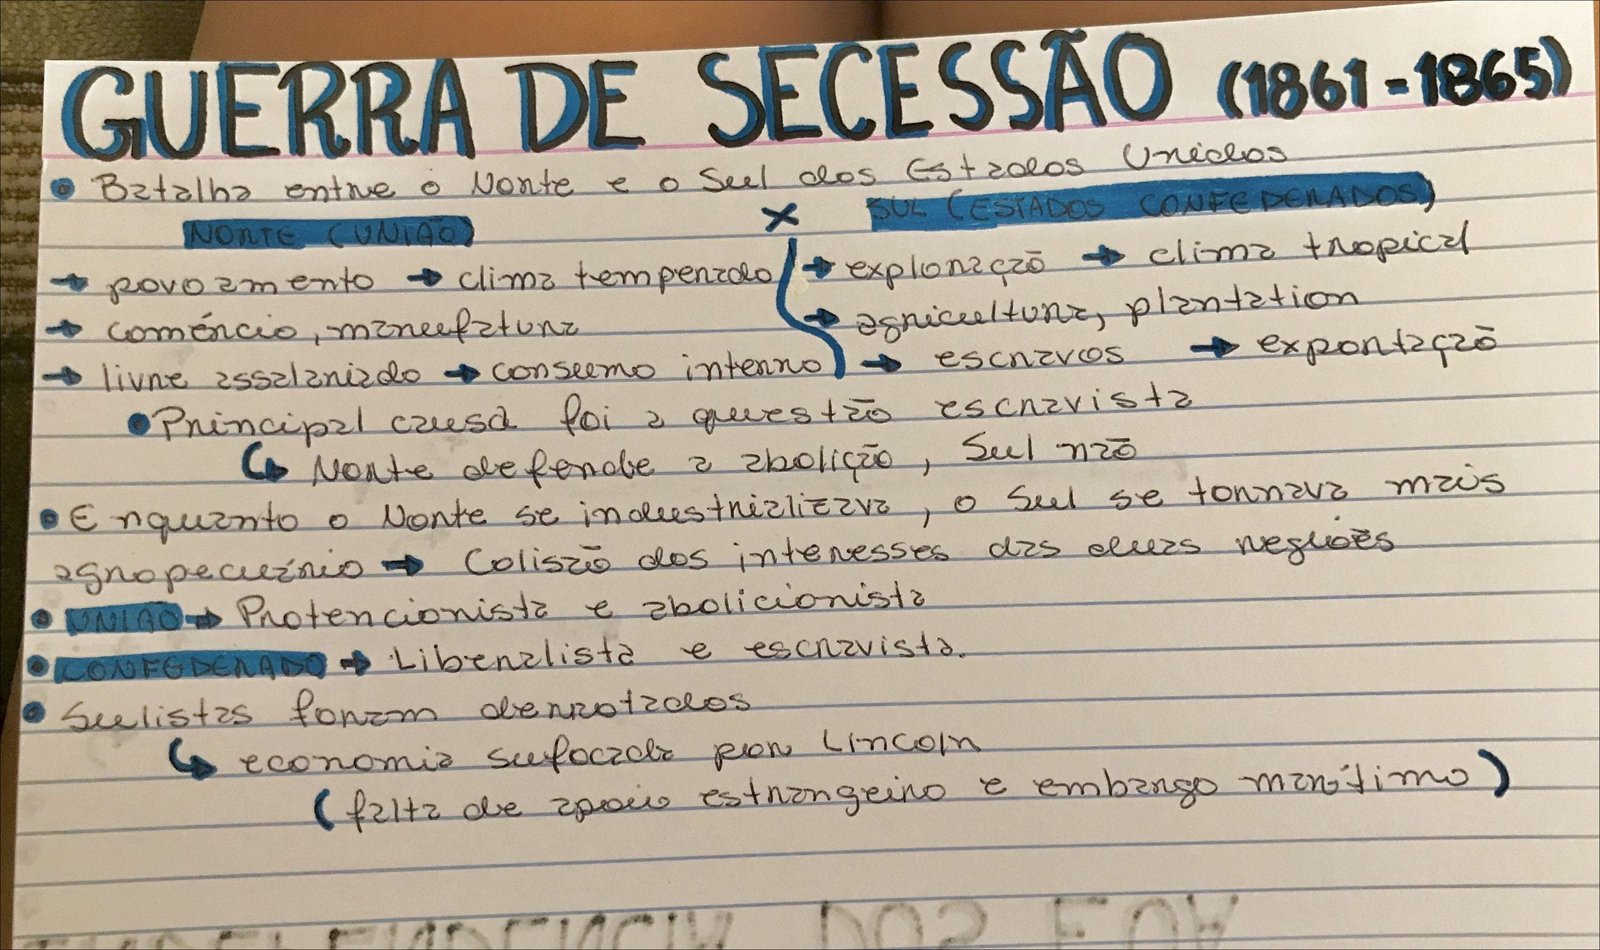 GUERRA DE SECESSÃO (1861-1865)
• Batalha entre o Norte e o Sul dos Estados Unidos
NORTE (UNIÃO) X SUL (ESTADOS CONFEDERADOS)
→ povoamento → clima temperado → exploração → clima tropical
→ comércio, manufatura → agricultura, plantation
→ livre assalariado → consumo interno → escravos → exportação
• Principal causa foi a questão escravista
↳ Norte defende a abolição, Sul não
• Enquanto o Norte se industrializava, o Sul se tornava mais
agropecuário → Colisão dos interesses das duas regiões
• UNIÃO → Protencionista e abolicionista
• CONFEDERADO → Liberalista e escravista.
• Sulistas foram derrotados
↳ economia sufocada por Lincoln
(falta de apoio estrangeiro e embargo marítimo)
DOS EUA